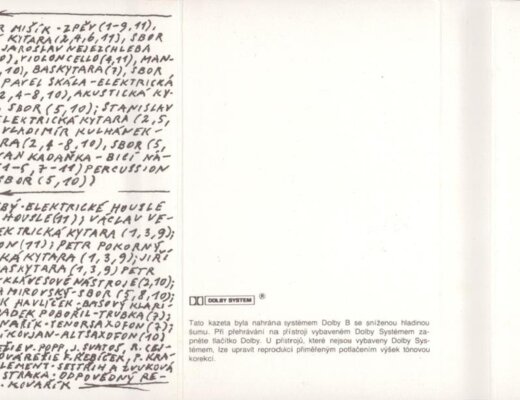 R MIŠÍK - ZPĚV (1-9,11),
KYTARA (2,4,6,11), SBOR
JAROSLAV NEJEZCHLEBA
VIOLONCELLO (4,11), MAN-
,10), BASKYTARA (7), SBOR
PAVEL SKÁLA - ELEKTRICKÁ
2,4-8,10), AKUSTICKÁ KY-
SBOR (5,10); STANISLAV
ELEKTRICKÁ KYTARA (2,5,
VLADIMÍR KULHÁNEK -
RA (2,4-8,10), SBOR (5,
AN KADAŇKA - BICÍ NÁ-
1-5, 7-11) PERCUSSION
SBOR (5,10))
BÝ - ELEKTRICKÉ HOUSLE
HOUSLE (11); VÁCLAV VE-
EKTRICKÁ KYTARA (1,3,9);
ON (11); PETR POKORNÝ
KÁ KYTARA (1,3,9); JIŘÍ
ASKYTARA (1,3,9) PETR
- KLÁVESOVÉ NÁSTROJE (2,10);
MIROVSKÝ - SBOR (5,8,10);
K HAVLÍČEK - BASOVÝ KLARI-
ADEK POBOŘIL - TRUBKA (7);
NAŘÍK - TENORSAXOFON (7);
KORJAN - ALTSAXOFON (10)
POPP, J. SVATOŠ, R. ČEJ-
F. ŘEBÍČEK, P. KRA-
LEMENT - SESTŘIH A ZVUKOVÁ
STRAKA - ODPOVĚDNÝ RE-
. KOVAŘÍK
DOLBY SYSTEM ®
Tato kazeta byla nahrána systémem Dolby B se sníženou hladinou
šumu. Při přehrávání na přístroji vybaveném Dolby Systémem za-
pněte tlačítko Dolby. U přístrojů, které nejsou vybaveny Dolby Sys-
témem, lze upravit reprodukci přiměřeným potlačením výšek tónovou
korekcí.